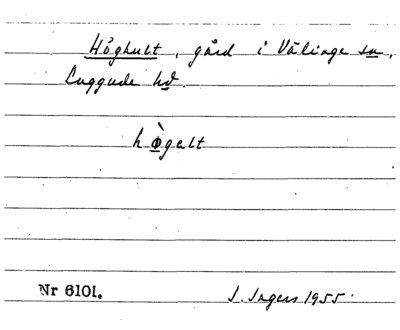 Höghult, gård i Välinge sn,
Luggude hd.
hø̀galt
Nr 6101.
I. Ingers 1955.